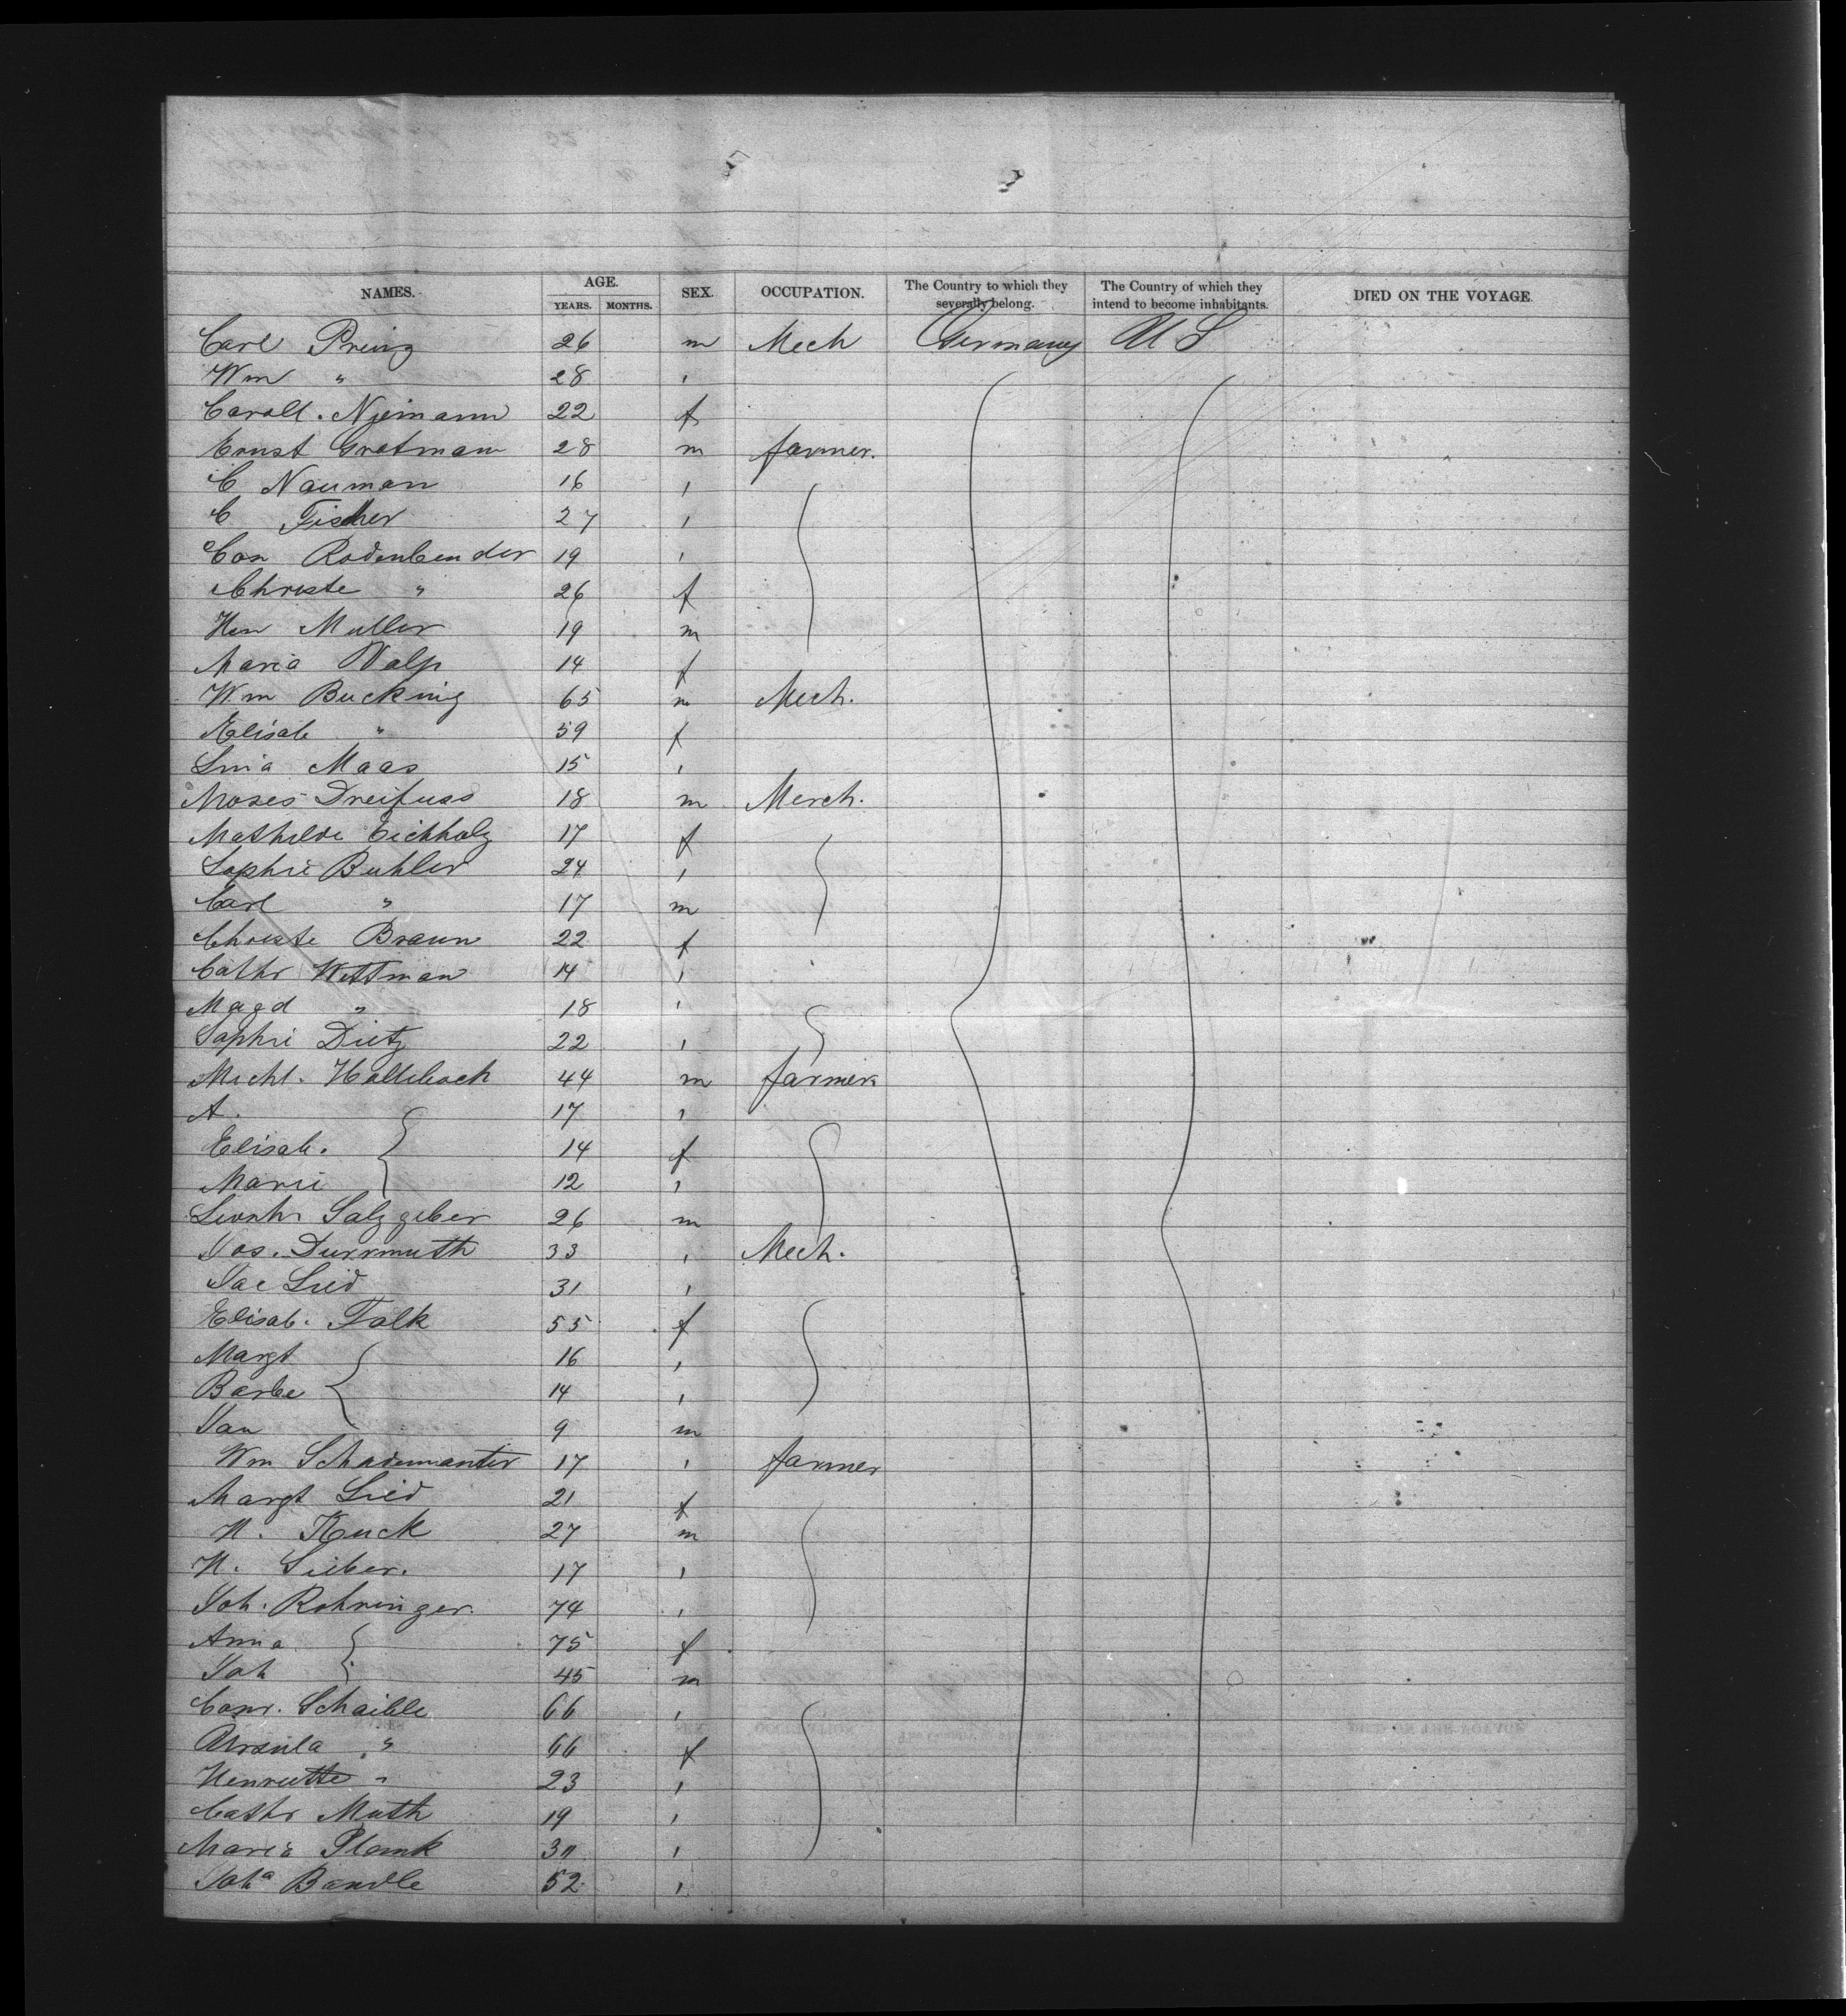 NAMES. AGE. YEARS. MONTHS. SEX. OCCUPATION. The Country to which they severally belong. The Country of which they intend to become inhabitants. DIED ON THE VOYAGE.
Carl Prinz 26 m Mech Germany U S
Wm " 28 "
Caroll. Niemann 22 f
Ernst Grotman 28 m farmer.
C Nauman 16 "
C Fischer 27 "
Con Rodenbender 19 "
Christe " 26 f
Hen Muller 19 m
Maria 14 f
Wm Bucking 65 m Mech.
Elisab " 59 f
Lina Maas 15 "
Moses Dreifuss 18 m Merch.
Mathilde Eichholz 17 f
Sophie Buhler 24 "
Carl " 17 m
Christe Braun 22 f
Cathr Wittman 14 "
Magd " 18 "
Sophie Dietz 22 "
Michl. Hollebach 44 m farmer
A. 17 "
Elisab. 14 f
Marie 12 "
Leonh Salzgeber 26 m
Jos. Durrmuth 33 " Mech.
Jac Lied 31 "
Elisab. Falk 55 f
Margt 16 "
Barbe 14 "
Jan 9 m
Wm 17 " farmer
Margt Lied 21 f
H. Kuck 27 m
H. Sieber. 17 "
Joh. Rohringer. 74 "
Anna 75 f
Joh 45 m
Conr. Schaible 66 "
Ursula " 66 f
Henriette " 23 "
Cathr Muth 19 "
Maria Plank "
Joha Bandle 52 "